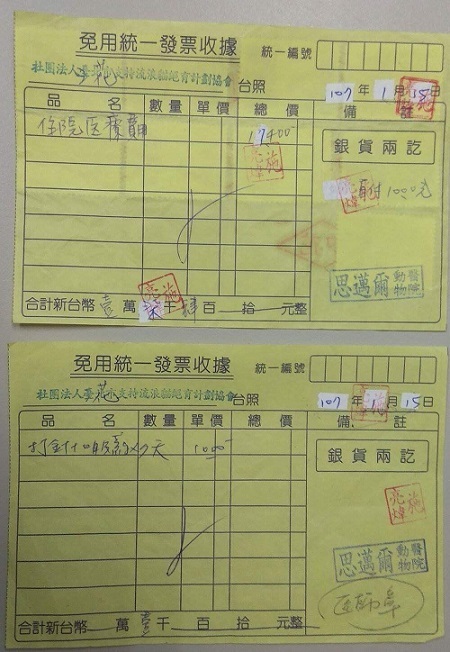 免用統一發票收據
統一編號
花
社團法人臺北市支持流浪貓絕育計劃協會
台照
107年1月15日
品名 數量 單價 總價 備註
住院医療費用 17400
銀貨兩訖
1000元
思邁爾動物醫院
合計新台幣壹萬柒千肆百拾元整
免用統一發票收據
統一編號
花
社團法人臺北市支持流浪貓絕育計劃協會
台照
107年1月15日
品名 數量 單價 總價 備註
1000
銀貨兩訖
亮煒施
思邁爾動物醫院
医師章
合計新台幣萬壹千百拾元整